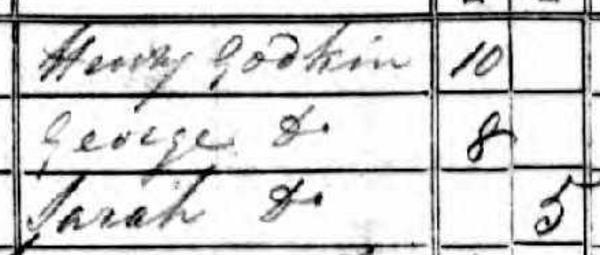 Henry Godkin 10
George Do 8
Sarah Do 5